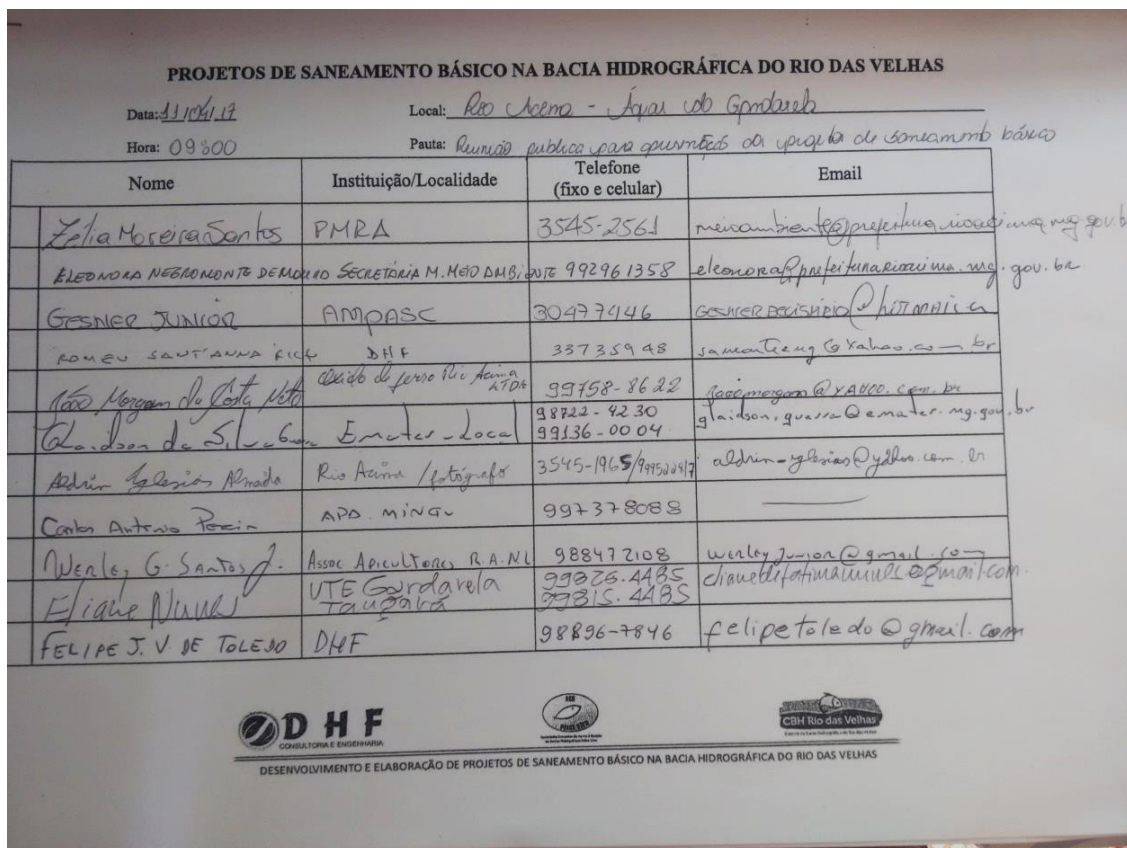 PROJETOS DE SANEAMENTO BÁSICO NA BACIA HIDROGRÁFICA DO RIO DAS VELHAS
Data: 11/04/17 Local: Rio Acima - Águas do Gandarela
Hora: 09:00 Pauta: Reunião publica para do projeto de saneamento básico
Nome Instituição/Localidade Telefone (fixo e celular) Email
Zelia Moreira Santos PMRA 3545-2561 meioambiente@prefeiturarioacima.mg.gov.b
ELEONORA NEGROMONTE DE SECRETÁRIA M. MEIO AMBIENTE 992961358 eleonora@prefeiturarioacima.mg.gov.br
GESNER JUNIOR AMPASC 30477446
ROMEU SANT'ANNA DHF 33735948
João Morgan da Costa Neto Óxido de ferro Rio Acima LTDA 99758-8622 joaomorgann@YAHOO.com.br
Glaidson da Silva Emater-Local 98722-4230 99136-0004 glaidson.guerra@emater.mg.gov.br
Aldrin Iglesias Almada Rio Acima /fotógrafo 3545-1965/ aldrin-yglesias@yahoo.com.br
Carlos Antonio APA. 997378088
WERLEY G. SANTOS J. Assoc APICULTORES R.A.NL 988472108 werleyjunior@gmail.com
Eliane Nunes UTE Gandarela 99826.4485
99815.4485
FELIPE J. V. DE TOLEDO DHF 98896-7846 felipetoledo@gmail.com
DHF
CONSULTORIA E ENGENHARIA
CBH Rio das Velhas
DESENVOLVIMENTO E ELABORAÇÃO DE PROJETOS DE SANEAMENTO BÁSICO NA BACIA HIDROGRÁFICA DO RIO DAS VELHAS